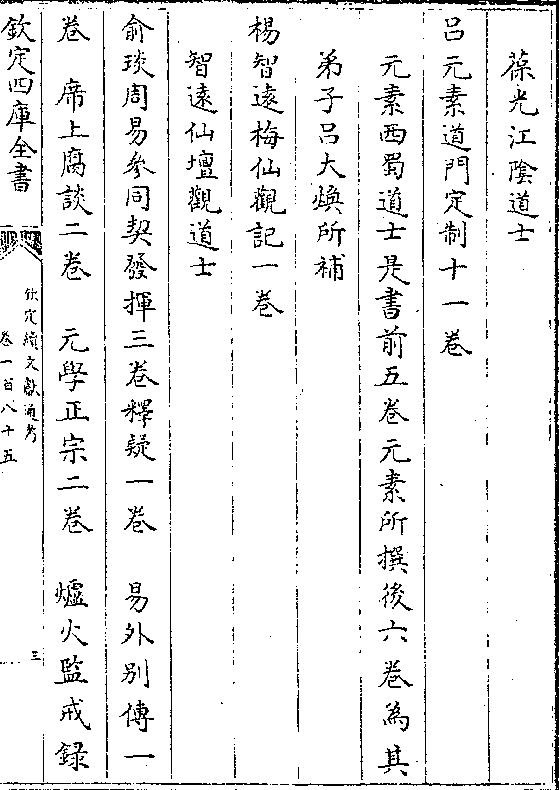 葆光江陰道士
吕元素道門定制十一卷
元素西蜀道士是書前五卷元素所撰後六卷為其
弟子吕大煥所補
楊智逺梅仙觀記一卷
智逺仙壇觀道士
俞琰周易參同契發揮三卷釋疑一卷　易外别傳一
卷　席上腐談二卷　元學正宗二卷　爐火監戒録
欽定四庫全書
欽定續文獻通考
卷一百八十五
三